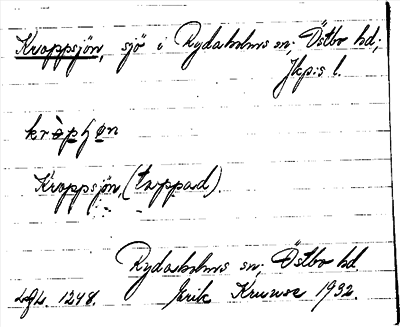 Kroppsjön, sjö i Rydaholms sn; Östbo hd;
Jkp:s l.
kròpʃøn
Kroppsjön, (tappad).
Rydaholms sn; Östbo hd
LGL. 1248. Erik Kruuse 1932.